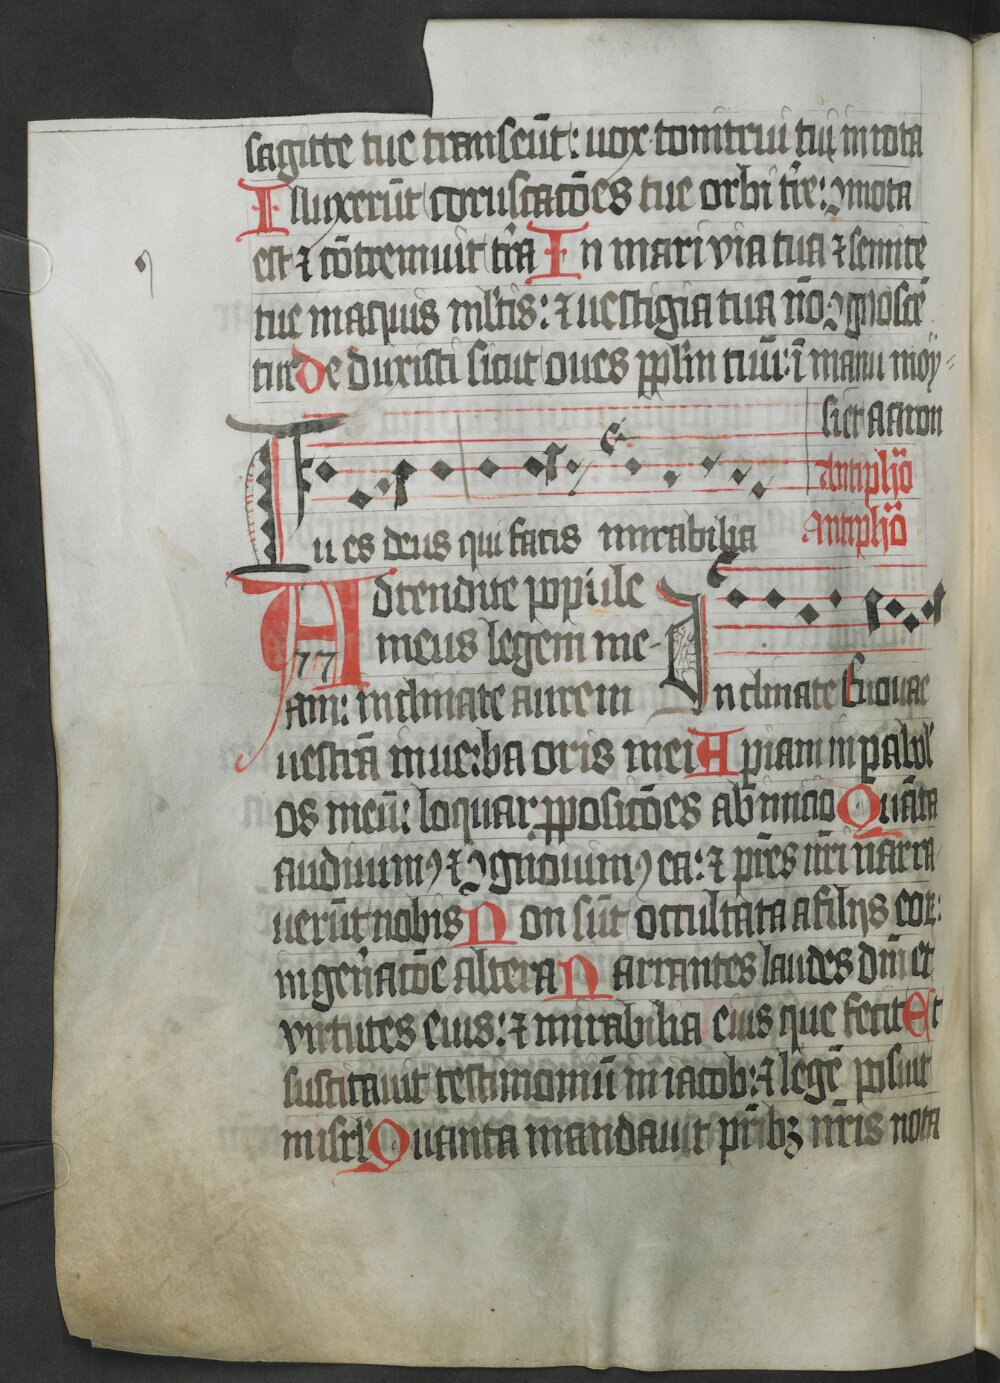 sagitte tue transeūt: uox tonitrui tui in rota
Illuxerūt coruscatōes tue orbi tr̄e: ꝯmota
est ⁊ cōtremuit tr̄a In mari via tua ⁊ semite
tue in aquis ml̄tis: ⁊ uestigia tua nō ꝯgnoscē
tur deduxisti sicut oues ppl̄m tuū: ī manu moy-
si et aaron
Antiphō
Tu es deus qui facis mirabilia Antiphō
Adtendite popule
meus legem me-
77
am: inclinate aurem Inclinate Euouae
uestrā in uerba oris mei Apiam in pabul̄
os meū: loquar ꝓpositōes ab inicio Quāta
audiuimꝰ ⁊ ꝯgnouimꝰ ea: ⁊ pr̄es nr̄i narra-
uerūt nobis Non sūt occultata a filijs eoꝝ:
in gen̄atōe altera Narrantes laudes dn̄i et
virtutes eius: ⁊ mirabilia eius que fecit Et
suscitauit testimoniū in iacob: ⁊ legē posuit
in isrl̄ Quanta mandauit pr̄ibꝫ nr̄is nota